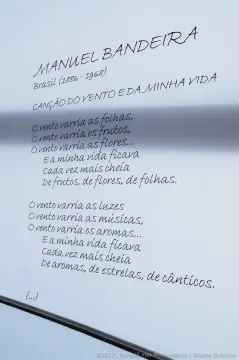 MANUEL BANDEIRA
Brasil (1886 - 1968)
CANÇÃO DO VENTO E DA MINHA VIDA
O vento varria as folhas,
O vento varria os frutos,
O vento varria as flores...
E a minha vida ficava
Cada vez mais cheia
De frutos, de flores, de folhas.
O vento varria as luzes
O vento varria as músicas,
O vento varria os aromas...
E a minha vida ficava
Cada vez mais cheia
De aromas, de estrelas, de cânticos.
(...)